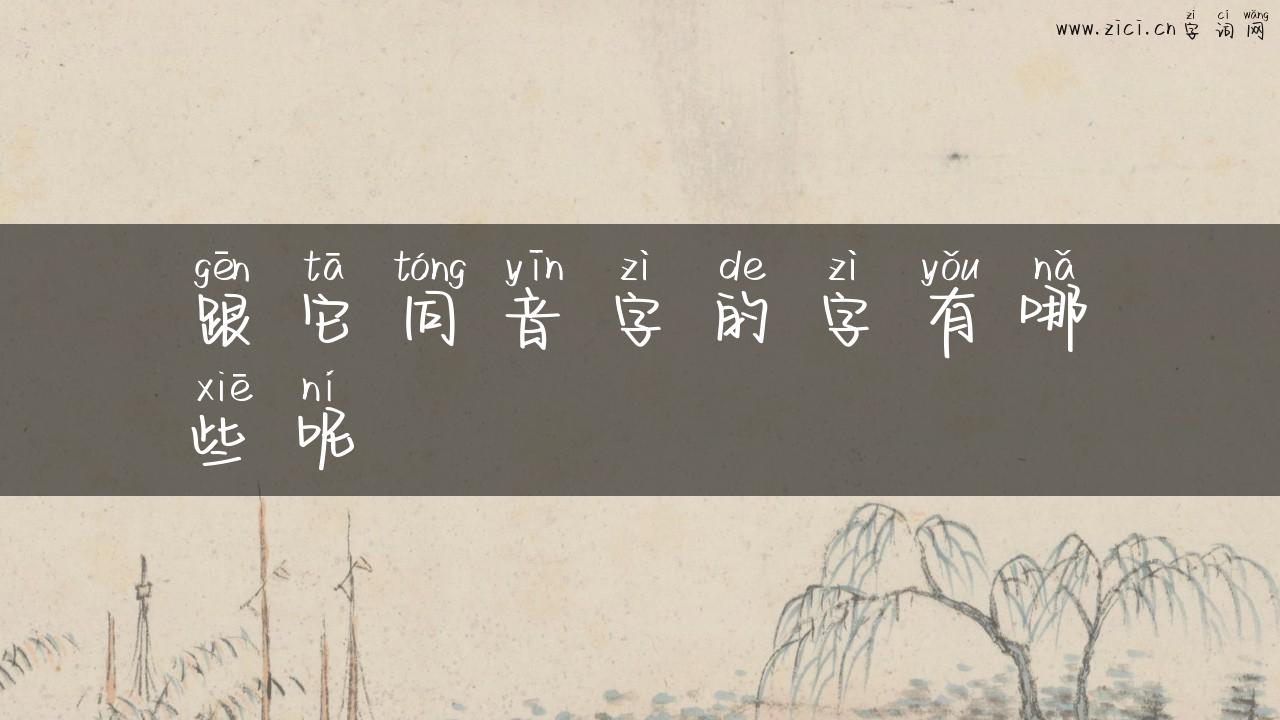 zì cí wǎng
www.zici.cn 字 词 网
gēn tā tóng yīn zì de zì yǒu nǎ
跟 它 同 音 字 的 字 有 哪
xiē ní
些 呢